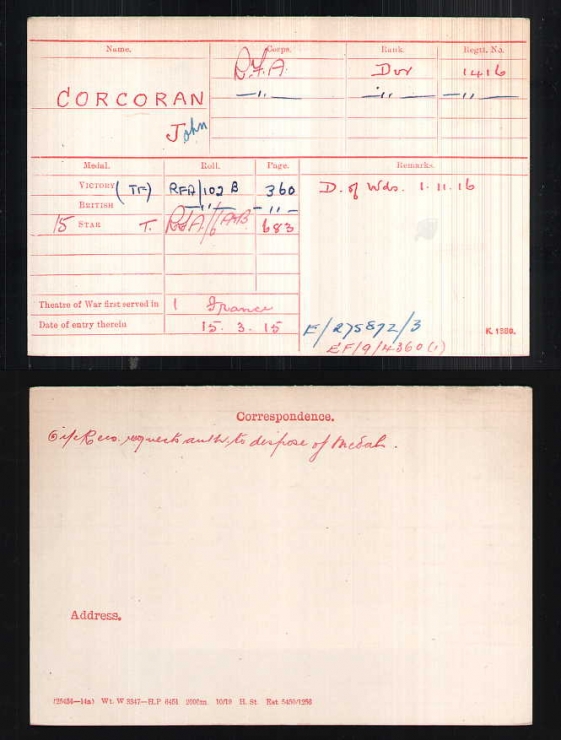 Name. Corps. Rank. Regtl. No.
CORCORAN R.F.A. Dvr 1416
John —"— —"— —"—
Medal. Roll. Page. Remarks.
VICTORY (TF) RFA/102 B 360 D. of Wds. 1.11.16
BRITISH —"— —"—
15 STAR T. RFA/ 683
Theatre of War first served in 1 France
Date of entry therein 15.3.15
E/275872/3
EF/9/4360(1)
K. 1380.
Correspondence.
requests auth. to dispose of Medals.
Address.
(26434—14a) Wt. W 5347—H.P 6454 2000m 10/19 H. St. Est 5450/1256